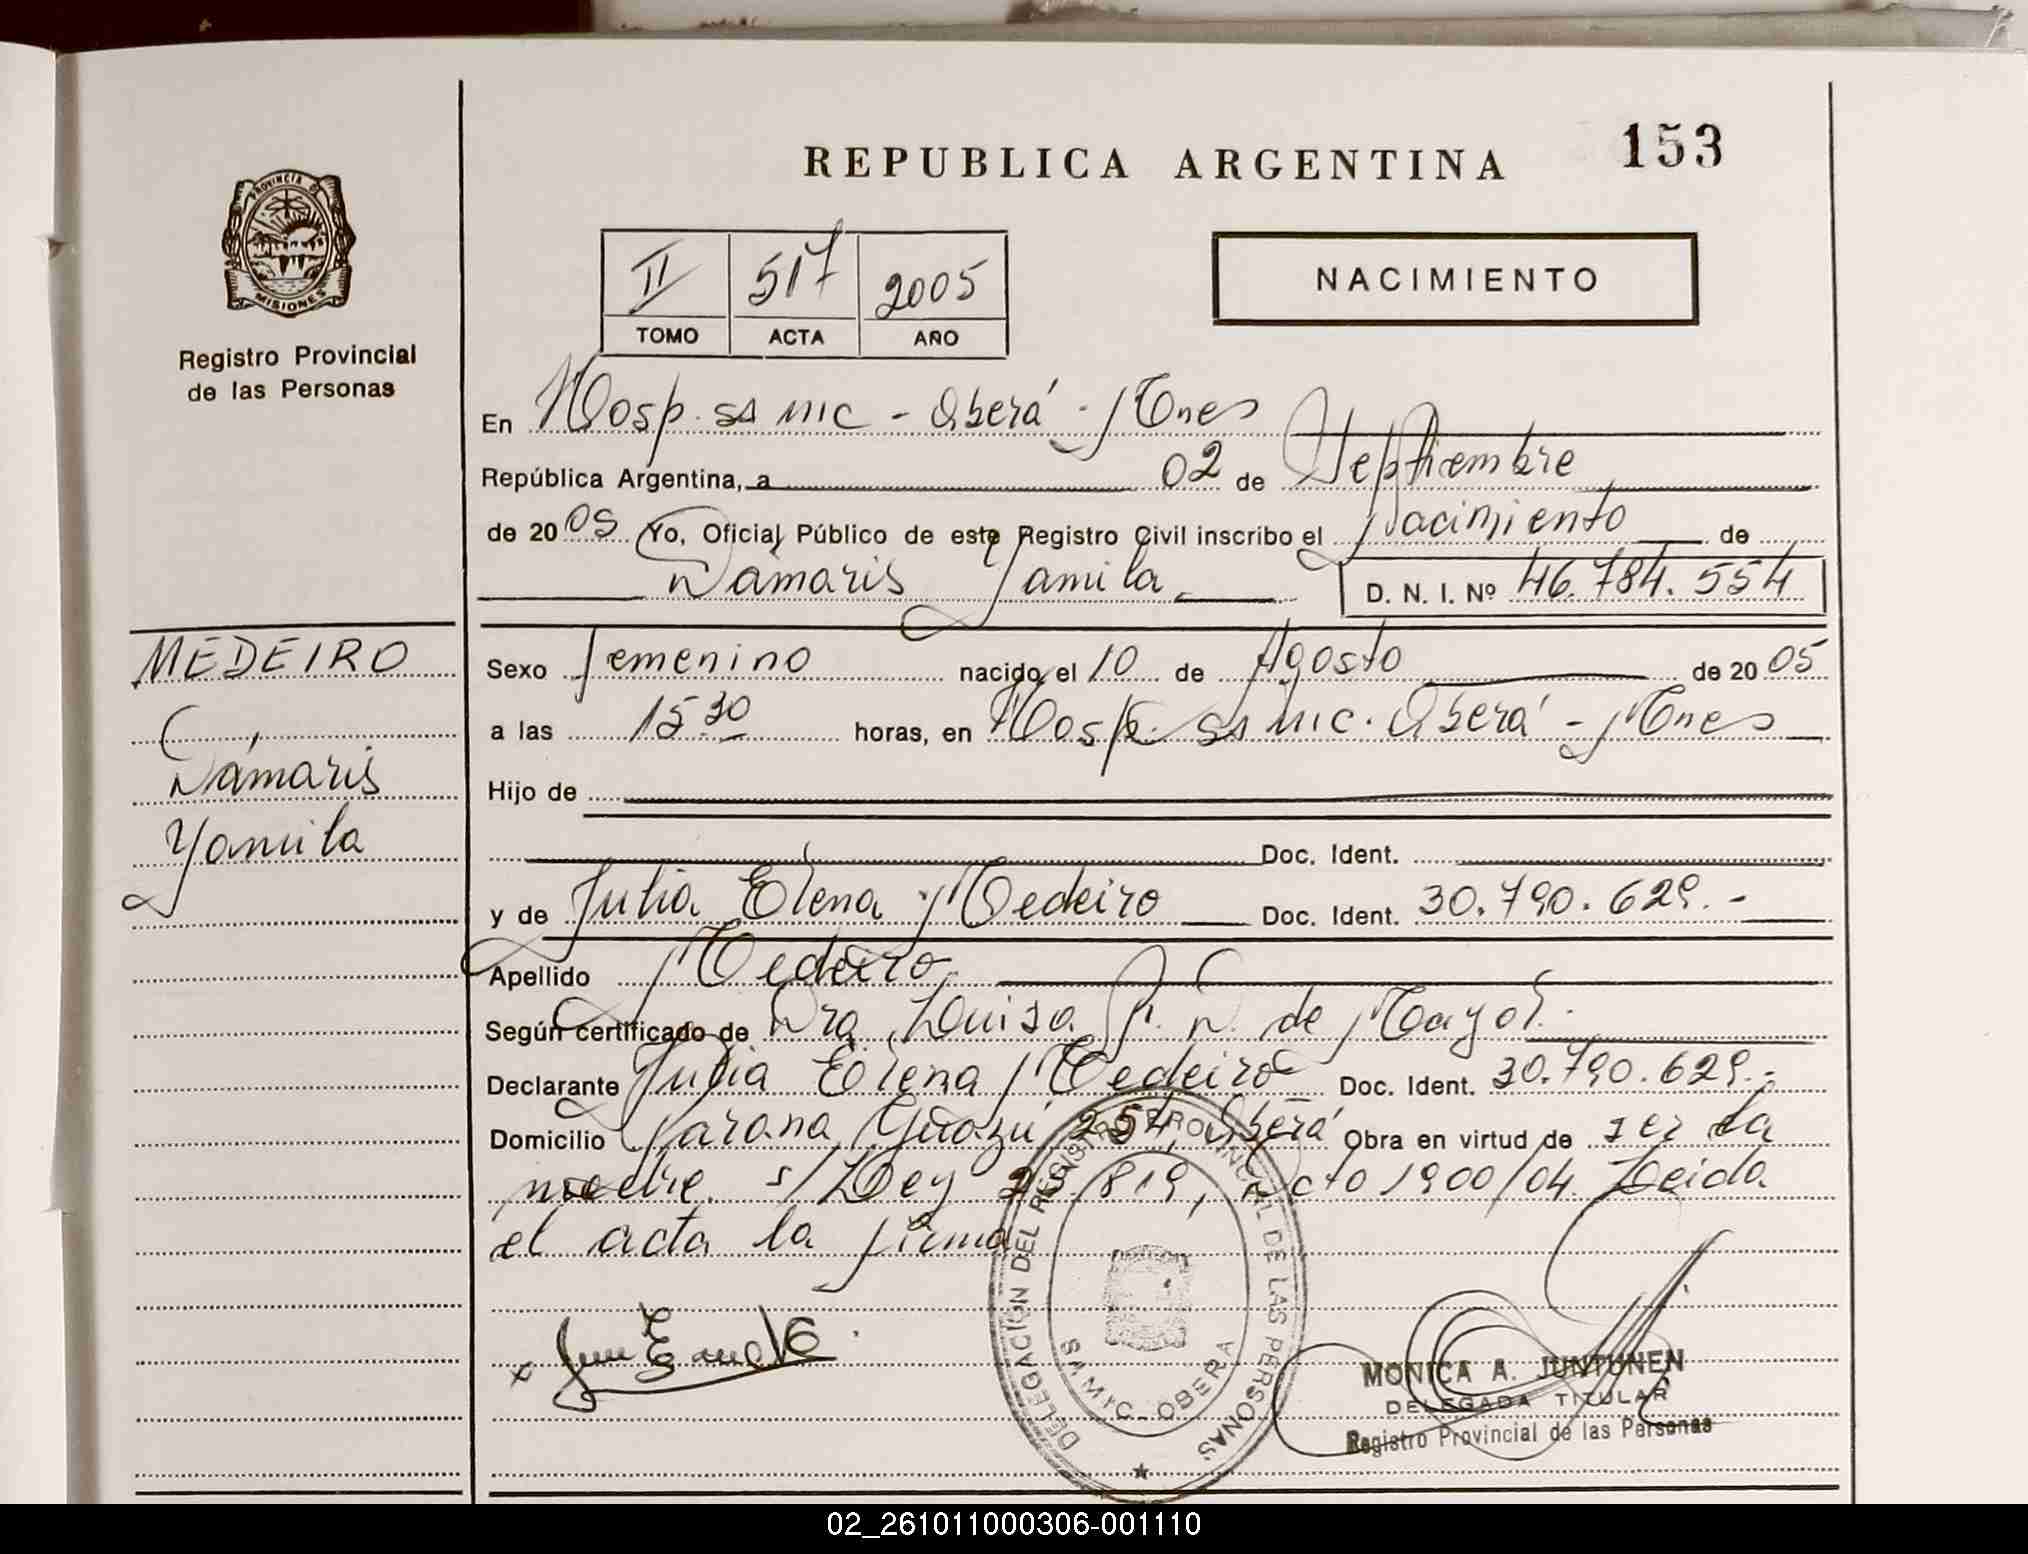 REPUBLICA ARGENTINA
153
PROVINCIA DE
MISIONES
Registro Provincial
de las Personas
II 517 2005
TOMO ACTA AÑO
NACIMIENTO
En Hosp. SAMIC - Oberá - Mnes
República Argentina, a 02 de Septiembre
de 20 05 Yo, Oficial Público de este Registro Civil inscribo el Nacimiento de
Dámaris Yamila D. N. I. Nº 46.784.554
MEDEIRO
Dámaris
Yamila
Sexo Femenino nacido el 10 de Agosto de 20 05
a las 15.30 horas, en Hosp. SAMIC. Oberá - Mnes
Hijo de
Doc. Ident.
y de Julia Elena Medeiro Doc. Ident. 30.790.629.-
Apellido Medeiro
Según certificado de Dra. Luisa P. D. de Mayol.
Declarante Julia Elena Medeiro Doc. Ident. 30.790.629.-
Domicilio Parana Guazú 254, Oberá Obra en virtud de ser la
madre. s/Ley 25.819, Dcto 1900/04. Leida
el acta la firma
DELEGACION DEL REGISTRO PROVINCIAL DE LAS PERSONAS
SAMIC - OBERA
MONICA A. JUNTUNEN
DELEGADA TITULAR
Registro Provincial de las Personas
02_261011000306-001110